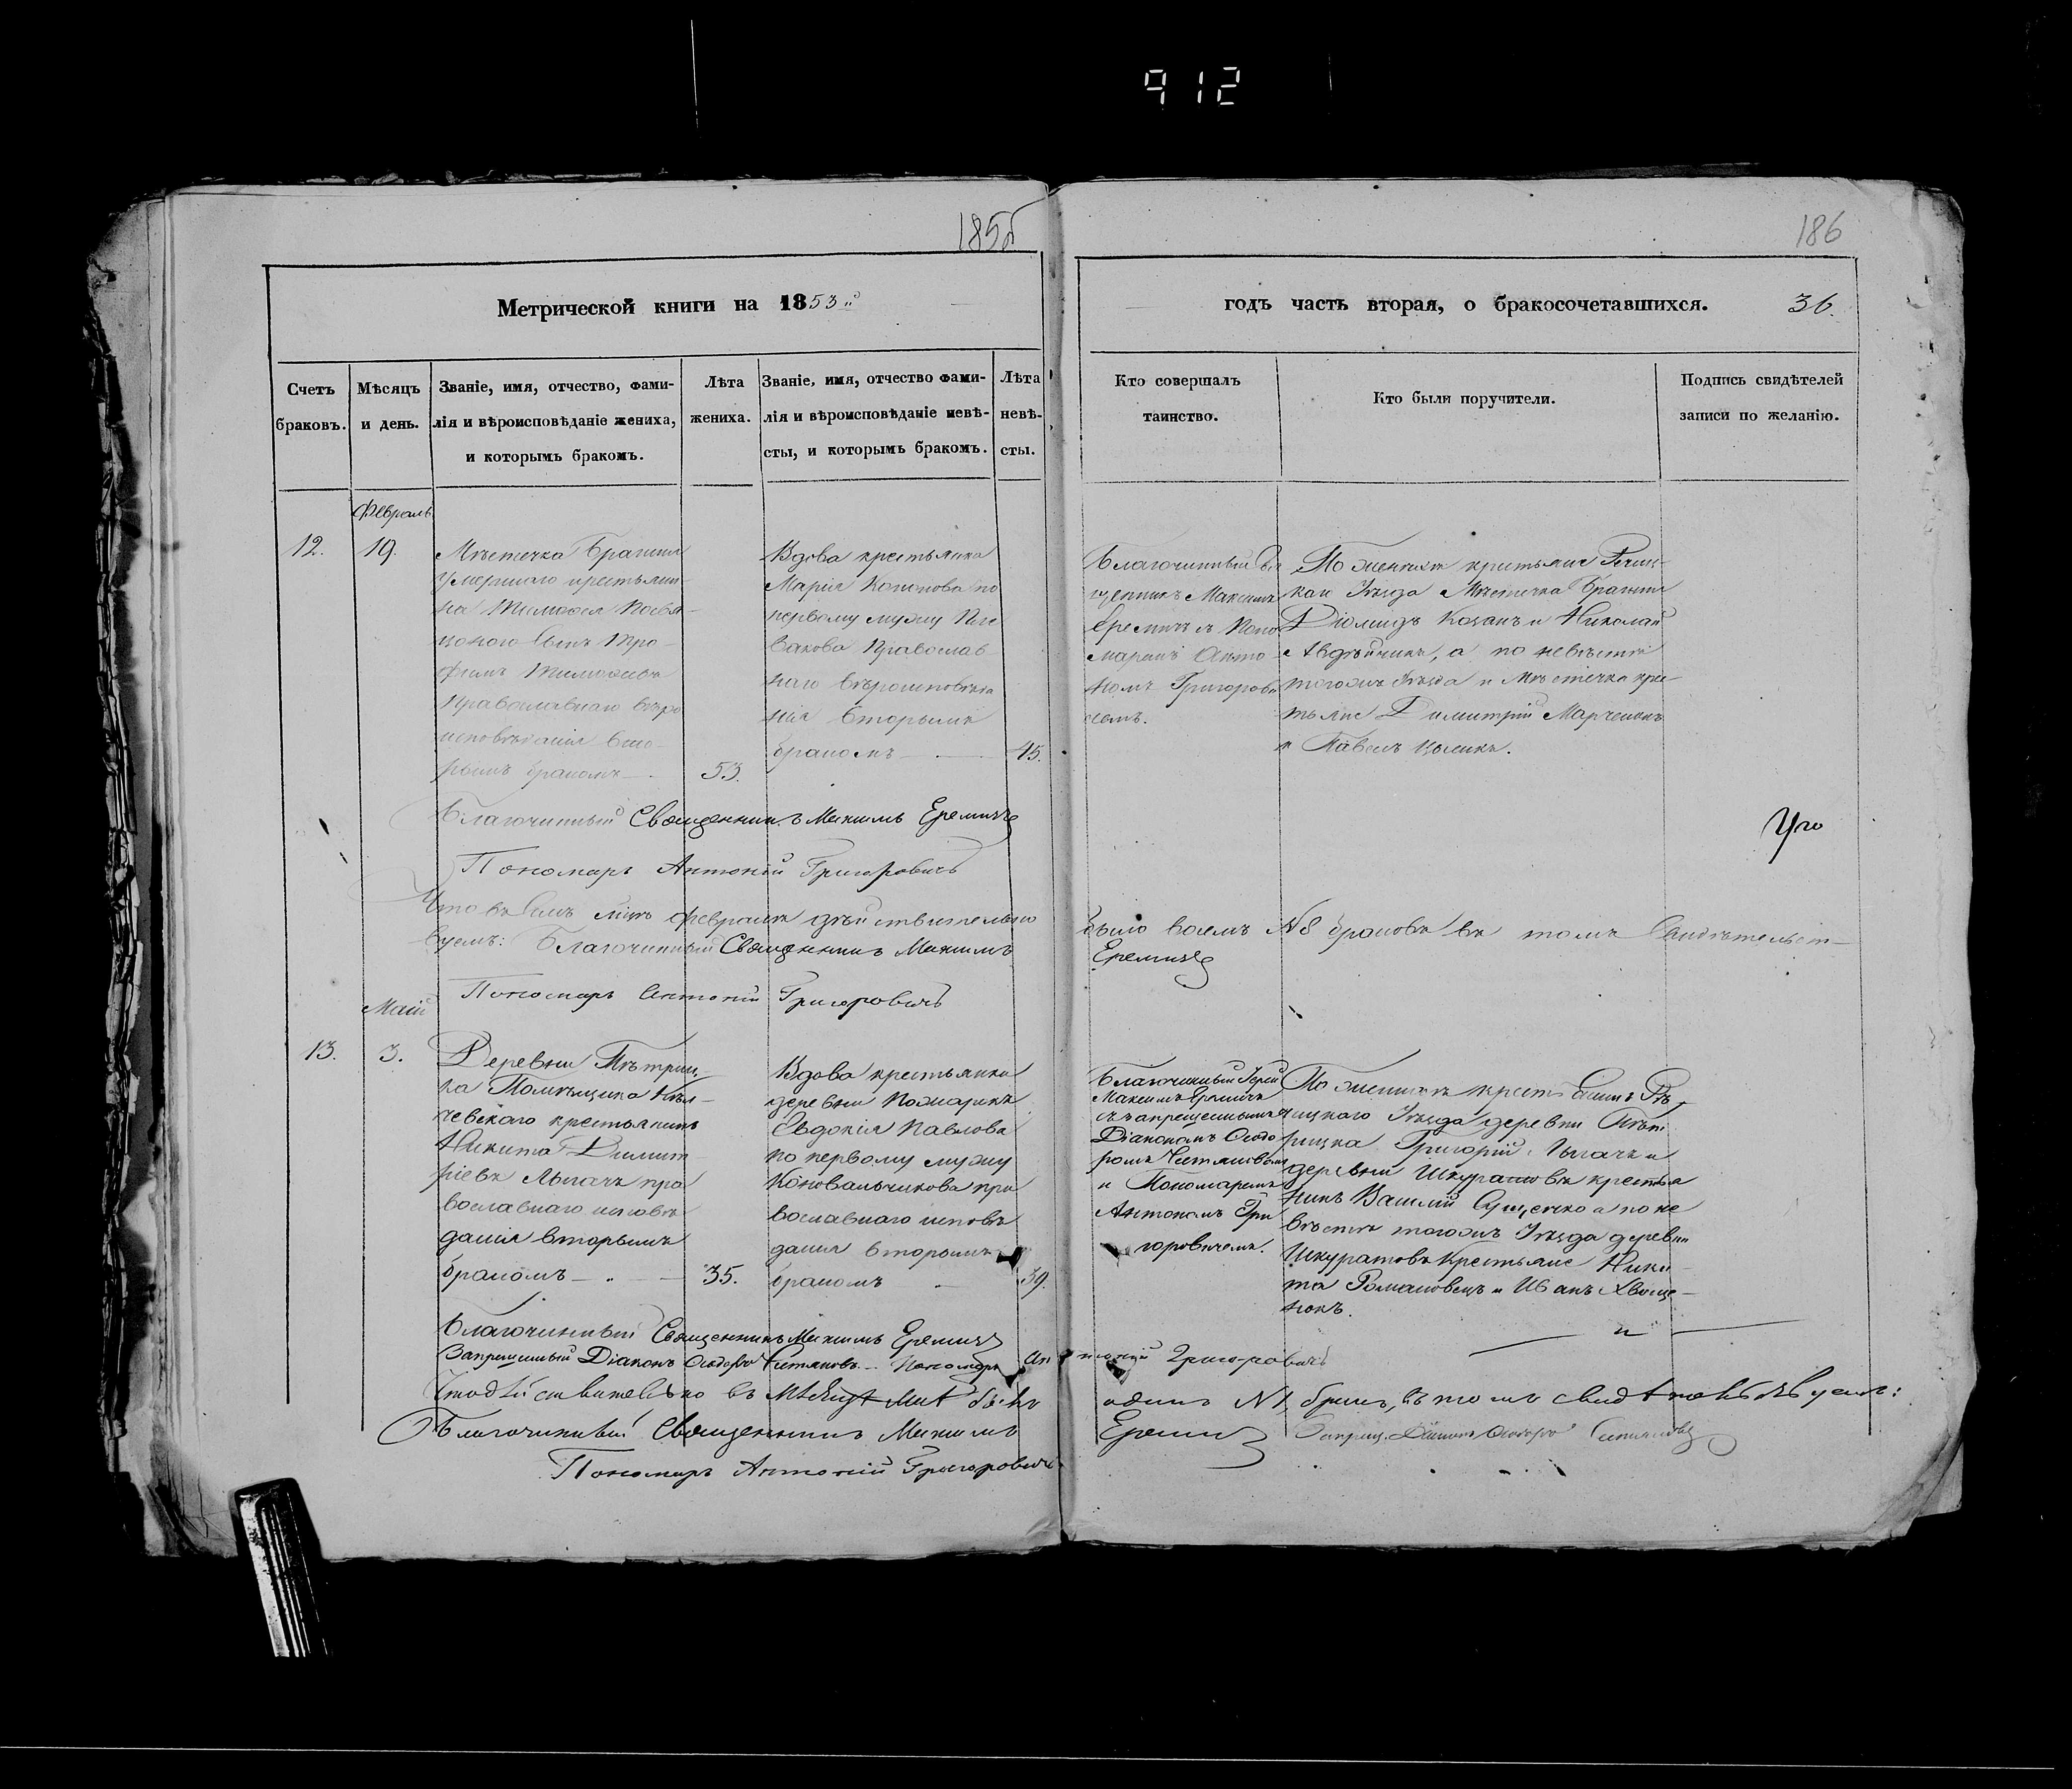 912
185об
186
Метрической книги на 1853й
годъ часть вторая, о бракосочетавшихся.
36.
Счетъ
браковъ.
Мѣсяцъ
и день.
Званіе, имя, отчество, фами-
лія и вѣроисповѣданіе жениха,
и которымъ бракомъ.
Лѣта
жениха.
Званіе, имя, отчество фами-
лія и вѣроисповѣданіе невѣ-
сты, и которымъ бракомъ.
Лѣта
невѣ-
сты.
Кто совершалъ
таинство.
Кто были поручители.
Подпись свидѣтелей
записи по желанію.
Февраль
12.
19.
Мѣстечка Брагина
умершаго крестьяни-
на Тимофея
сынъ Тро-
фимъ Тимофеевъ
православнаго вѣро
исповѣданія вто-
рымъ бракомъ
53.
Вдова крестьянка
Марія Кононова по
первому мужу
православ
наго вѣроисповѣда
нія вторымъ
бракомъ
45.
Благочинный Свя
щенникъ Максимъ
Еремичъ съ Поно
маремъ Анто
номъ Григорови
чемъ.
По женихѣ крестьяне Речиц-
каго Уѣзда Мѣстечка Брагина
Діомидъ Козакъ и Николай
а по невѣстѣ
тогожъ Уѣзда и Мѣстечка крес
тьяне Димитрій Марченокъ
и Павелъ
Благочинный Священникъ Максимъ Еремичъ
Пономарь Антоній Григоровичъ
Что въ семъ мцѣ февралѣ дѣйствительно
было восемь №8 браковъ въ томъ свидѣтельст-
вуемъ: Благочинный Священникъ Максимъ
Еремичъ
Пономарь Антоній Григоровичъ
Маій
13.
3.
Деревни Пѣтриц-
ка Помѣщика
крестьянинъ
Никита Димит-
ріевъ Лыгачъ пра
вославнаго исповѣ
данія вторымъ
бракомъ
35.
Вдова крестьянка
деревни Пожарки
Евдокія Павлова
по первому мужу
Коновальчикова пра
вославнаго исповѣ
данія вторымъ
бракомъ
39.
Благочинный Іерей
Максимъ Еремичъ
съ запрещеннымъ
Діакономъ Ѳеодо
ромъ
и Пономаремъ
Антономъ Гри
горовичемъ.
По женихѣ Рѣ
чицкаго Уѣзда деревни Пѣт
рицка Григорій Лыгачъ и
деревни Шкуратовъ крестья
нинъ Василій Сущечко а по не
вѣстѣ тогожъ Уѣзда деревни
Шкуратовъ крестьяне Ники-
та Романовецъ и Иванъ Хвоще-
нокъ.
Благочинный Священникъ Максимъ Еремичъ
Запрещенный Діаконъ Ѳеодоръ Пономарь Антоній Григоровичъ
Что дѣйствительно въ Мѣсяцѣ Маѣ былъ
одинъ №1, бракъ, въ томъ свидѣтельствуемъ:
Благочинный Священникъ Максимъ
Еремичъ Запрещ. Діаконъ Ѳеодоръ
Пономарь Антоній Григоровичъ